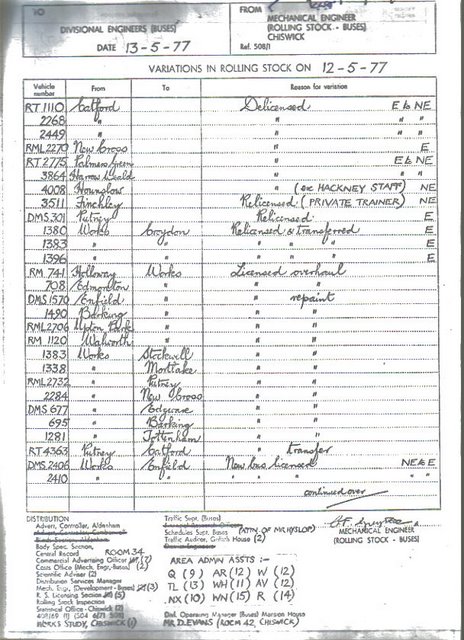 TO
DIVISIONAL ENGINEERS (BUSES)
DATE 13-5-77
FROM
MECHANICAL ENGINEER
(ROLLING STOCK - BUSES)
CHISWICK
Ref. 508/1
VARIATIONS IN ROLLING STOCK ON 12-5-77
Vehicle number From To Reason for variation
RT 1110 Catford Delicensed E to NE
2268 " " " "
2449 " " " "
RML 2270 New Cross " E
RT 2775 Palmers Green " E to NE
3864 Harrow Weald " " "
4008 Hounslow " (ex HACKNEY STAFF) NE
3511 Finchley Relicensed (PRIVATE TRAINER) NE
DMS 301 Putney Relicensed E
1380 Works Croydon Relicensed & transferred E
1383 " " " " " E
1396 " " " " " E
RM 741 Holloway Works Licensed overhaul
708 Edmonton " " "
DMS 1570 Enfield " " repaint
1490 Barking " " "
RML 2706 Upton Park " " "
RM 1120 Walworth " " "
1383 Works Stockwell " "
1338 " Mortlake " "
RML 2732 " Putney " "
2284 " New Cross " "
DMS 677 " Edgware " "
695 " Barking " "
1281 " Tottenham " "
RT 4363 Putney Catford " transfer
DMS 2406 Works Enfield New bus licensed NE to E
2410 " " " " " "
continued over
DISTRIBUTION
Advert. Controller, Aldenham
Body Spec. Section,
Central Record ROOM 34
Commercial Advertising Officer (2)
Costs Office (Mech. Engr. Buses) (2)
Scientific Adviser (2)
Distribution Services Manager
Mech. Engr. (Development - Buses) (3)
R. S. Licensing Section (5)
Rolling Stock Inspection
Statistical Office - Chiswick (2)
WORKS STUDY, CHISWICK (1)
Traffic Supt. (Buses)
Schedules Supt. Buses (ATTN. OF MR HYSLOP)
Traffic Auditor, Griffith House (2)
AREA ADMN ASSTS :-
Q (9) AR (12) W (12)
TL (13) WH (11) AV (12)
NX (10) WN (15) R (14)
Divl. Operating Manager (Buses) Mansion House
MR. D. EVANS (ROOM 42, CHISWICK)
MECHANICAL ENGINEER
(ROLLING STOCK - BUSES)